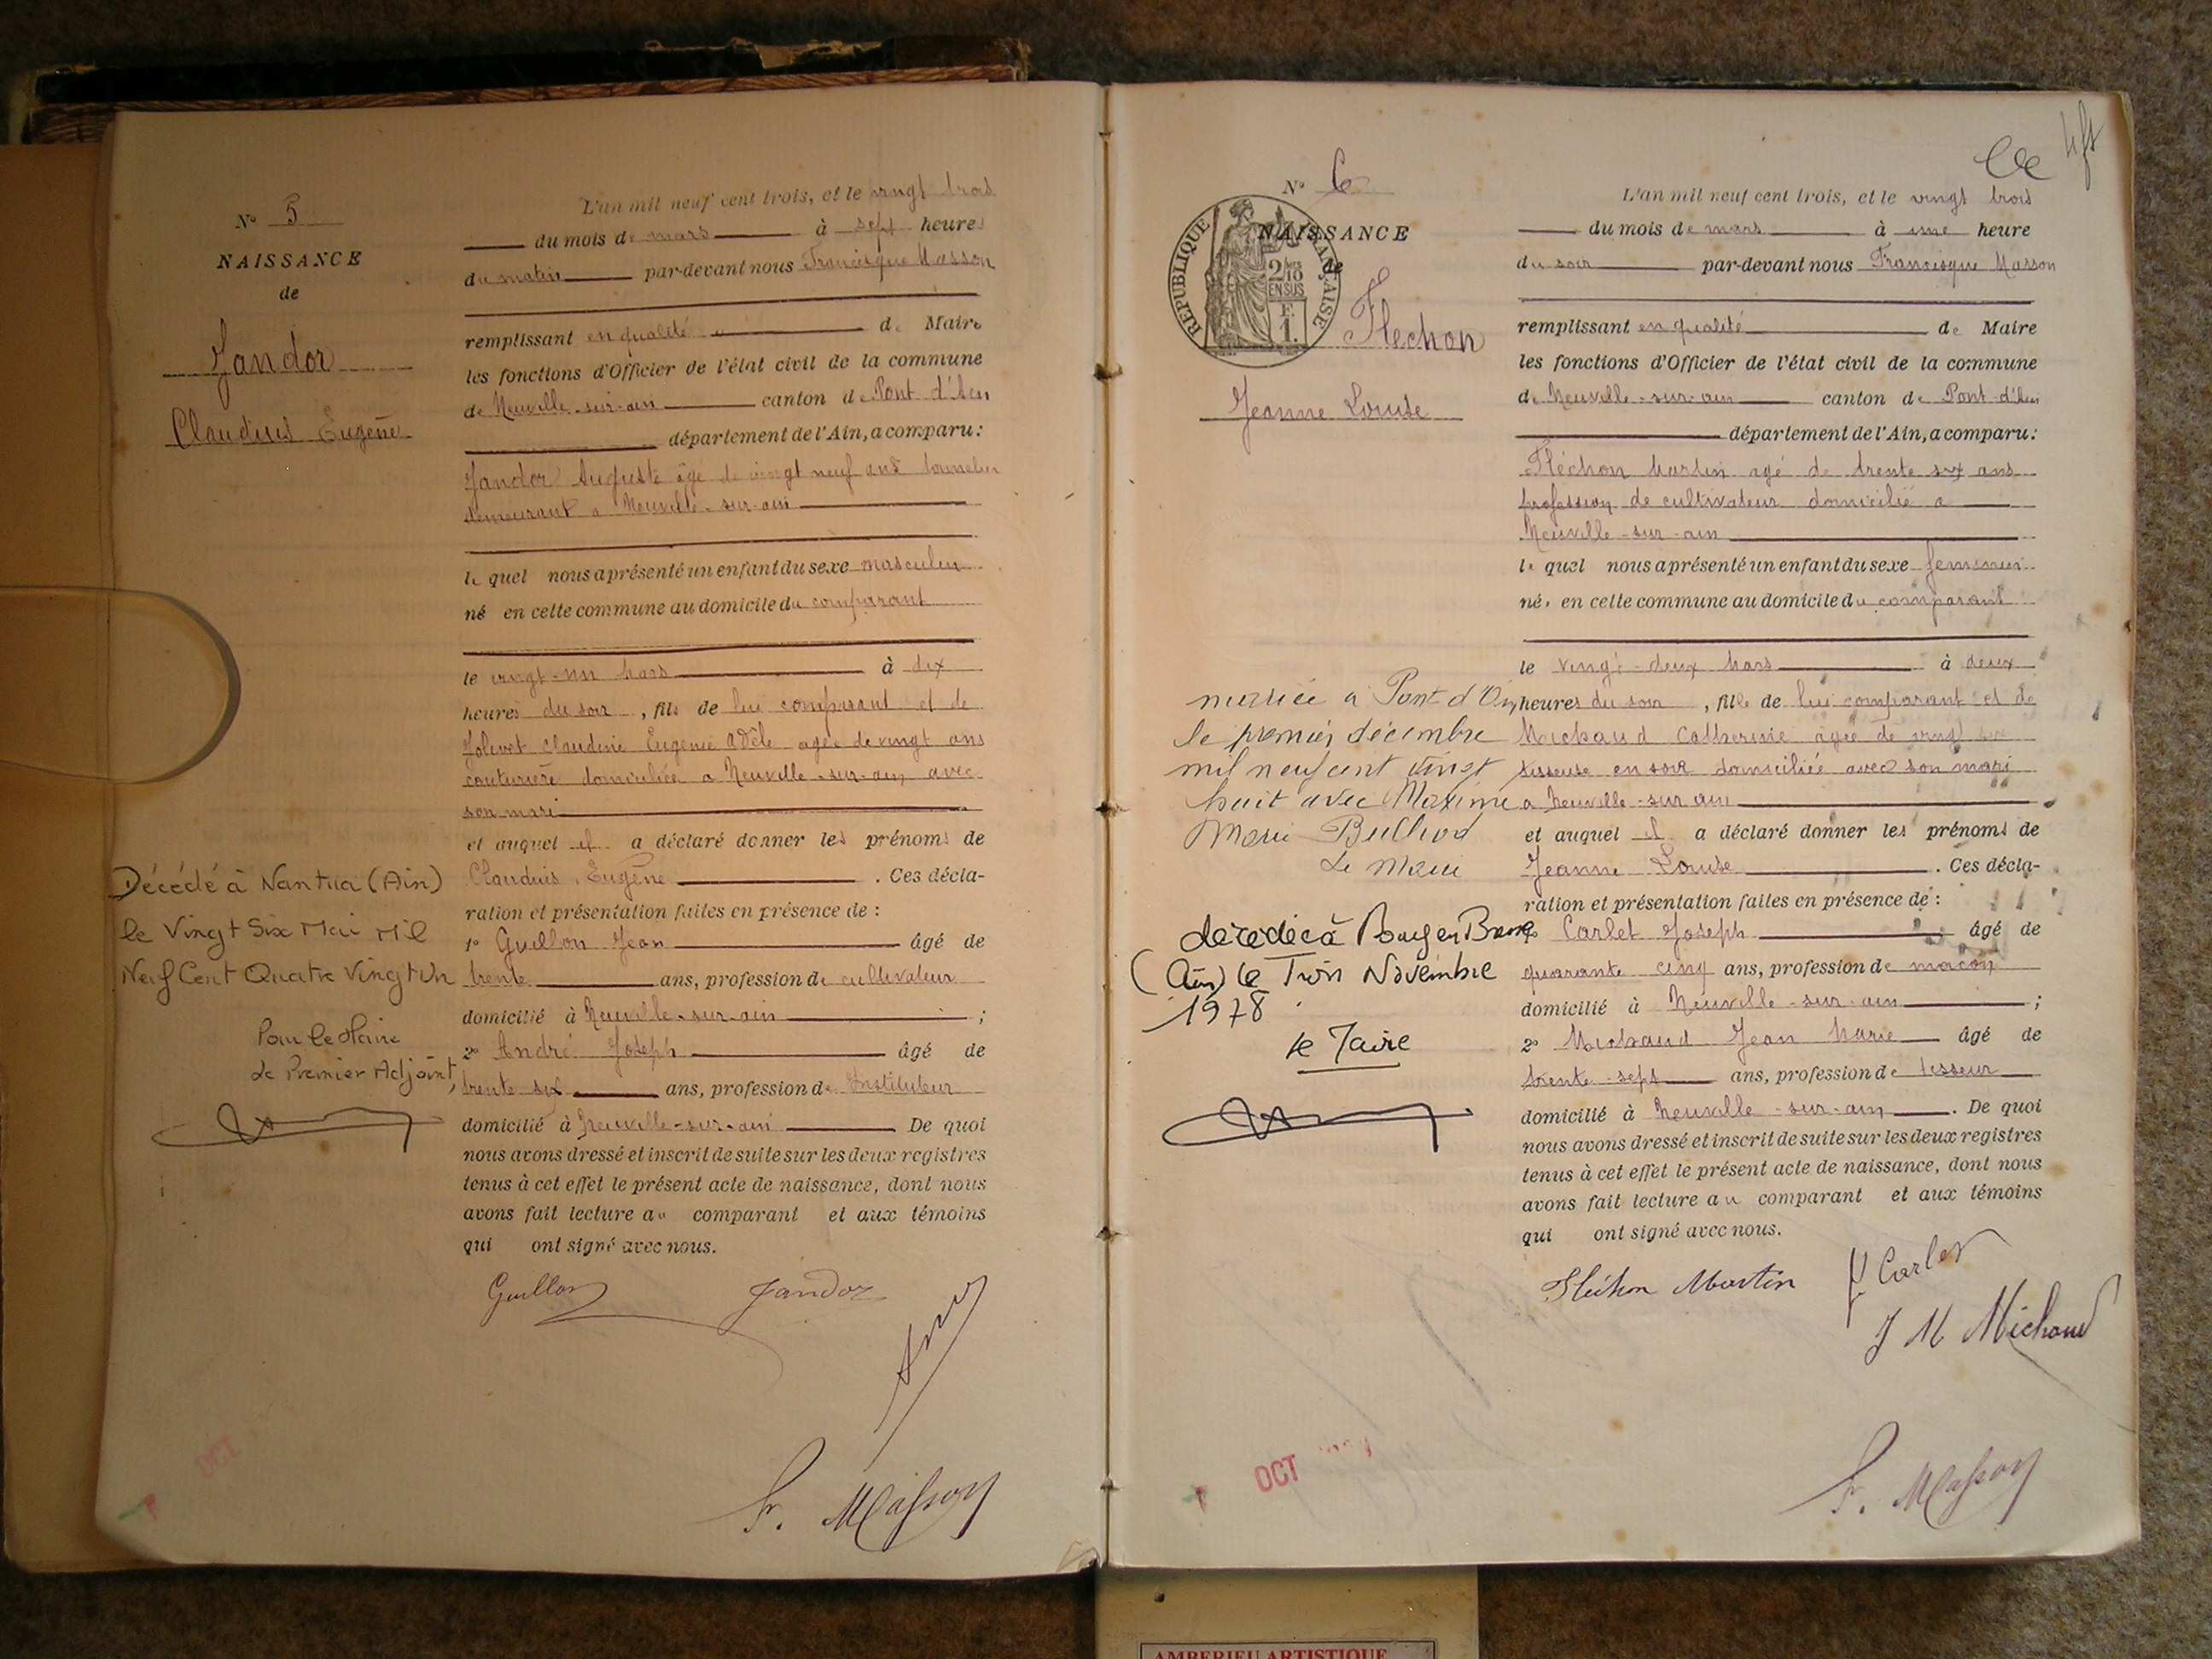 N° 5
NAISSANCE
de
Jandor
Claudius Eugène
L'an mil neuf cent trois, et le vingt trois
du mois de mars à sept heures
du matin par-devant nous Francisque Masson
remplissant en qualité de Maire
les fonctions d'Officier de l'état civil de la commune
de Neuville-sur-ain canton de Pont d'Ain
département de l'Ain, a comparu:
Jandor Auguste âgé de vingt neuf ans tourneur
demeurant a Neuville-sur-ain
le quel nous a présenté un enfant du sexe masculin
né en cette commune au domicile du comparant
le vingt-un Mars à dix
heures du soir, fils de lui comparant et de
Jolivet Claudine Eugénie Adèle agée de vingt ans
couturière domiciliée a Neuville-sur-ain avec
son mari
et auquel il a déclaré donner les prénoms de
Claudius, Eugène. Ces décla-
ration et présentation faites en présence de :
1° Guillon Jean âgé de
trente ans, profession de cultivateur
domicilié à Neuville-sur-ain ;
2° André Joseph âgé de
trente six ans, profession de Instituteur
domicilié à Neuville-sur-ain De quoi
nous avons dressé et inscrit de suite sur les deux registres
tenus à cet effet le présent acte de naissance, dont nous
avons fait lecture au comparant et aux témoins
qui ont signé avec nous.
Guillon Jandor
Fr. Masson
Décédé à Nantua (Ain)
le Vingt Six Mai Mil
Neuf Cent Quatre Vingt Un
Pour le Maire
Le Premier Adjoint,
OCT
N° 6
NAISSANCE
de
REPUBLIQUE FRANÇAISE
2/10
EN SUS
F.
1.
Fléchon
Jeanne Louise
L'an mil neuf cent trois, et le vingt trois
du mois de mars à une heure
du soir par-devant nous Francisque Masson
remplissant en qualité de Maire
les fonctions d'Officier de l'état civil de la commune
de Neuville-sur-ain canton de Pont-d'Ain
département de l'Ain, a comparu:
Fléchon Martin agé de trente six ans
profession de cultivateur domicilié a
Neuville-sur-ain
le quel nous a présenté un enfant du sexe féminin
née en cette commune au domicile du comparant
le vingt-deux Mars à deux
heures du soir, fille de lui comparant et de
Michaud Catherine agée de vingt
tisseuse en soie domiciliée avec son mari
a Neuville-sur-ain
et auquel il a déclaré donner les prénoms de
Jeanne Louise. Ces décla-
ration et présentation faites en présence de :
Carlet Joseph âgé de
quarante cinq ans, profession de maçon
domicilié à Neuville-sur-ain ;
2° Michaud Jean Marie âgé de
trente-sept ans, profession de tisseur
domicilié à Neuville-sur-ain. De quoi
nous avons dressé et inscrit de suite sur les deux registres
tenus à cet effet le présent acte de naissance, dont nous
avons fait lecture au comparant et aux témoins
qui ont signé avec nous.
Fléchon Martin J Carlet
J M Michaud
Fr. Masson
mariée a Pont d'Ain
le premier décembre
mil neuf cent vingt
huit avec Maxime
Marie
Le Maire
décédée à Bourg en Bresse
(Ain) le Trois Novembre
1978
le Maire
OCT
AMBERIEU ARTISTIQUE